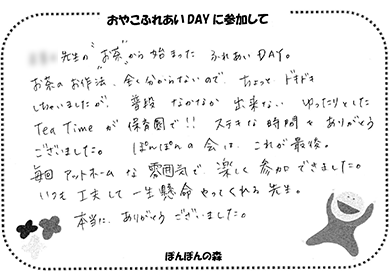 おやこふれあいDAYに参加して
先生の"お茶"から始まった ふれあいDAY。
お茶のお作法、全く分からないので、ちょっと ドキドキ
しちゃいましたが、普段 なかなか 出来ない ゆったりとした
Tea Time が 保育園で!! ステキな時間を ありがとう
ございました。 ぽんぽんの 会は、これが最後。
毎回 アットホームな 雰囲気で、楽しく 参加できました。
いつも 工夫して 一生懸命 やってくれる 先生。
本当に、ありがとう ございました。
ぽんぽんの森